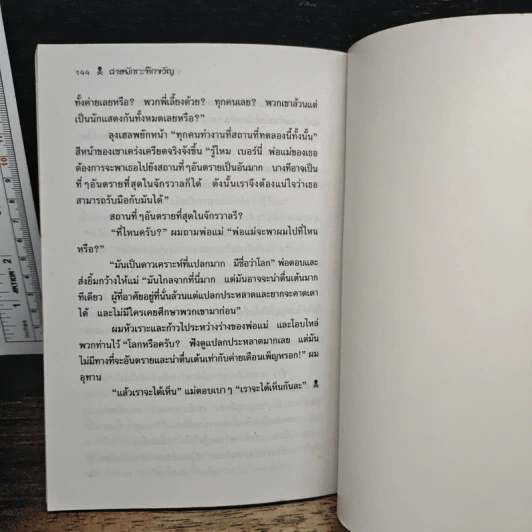 ๑๔๔ ค่ายผีกระทึกขวัญ
ทั้งค่ายเลยหรือ? พวกพี่เลี้ยงด้วย? ทุกคนเลย? พวกเขาล้วนแต่
เป็นนักแสดงกันทั้งหมดเลยหรือ?”
ลุงเฮลพยักหน้า “ทุกคนทำงานที่สถานที่ทดลองนี้ทั้งนั้น”
สีหน้าของเขาเคร่งเครียดจริงจังขึ้น “รู้ไหม เบอร์นี่ พ่อแม่ของเธอ
ต้องการจะพาเธอไปยังสถานที่ๆอันตรายเป็นอันมาก บางทีอาจเป็น
ที่ๆอันตรายที่สุดในจักรวาลก็ได้ ดังนั้นเราจึงต้องแน่ใจว่าเธอ
สามารถรับมือกับมันได้”
สถานที่ๆอันตรายที่สุดในจักรวาลรึ?
“ที่ไหนครับ?” ผมถามพ่อแม่ “พ่อแม่จะพาผมไปที่ไหน
หรือ?”
“มันเป็นดาวเคราะห์ที่แปลกมาก มีชื่อว่าโลก” พ่อตอบและ
ส่งยิ้มกว้างให้แม่ “มันไกลจากที่นี่มาก แต่มันอาจจะน่าตื่นเต้นมาก
ทีเดียว ผู้ที่อาศัยอยู่ที่นั่นล้วนแต่แปลกประหลาดและยากจะคาดเดา
ได้ และไม่มีใครเคยศึกษาพวกเขามาก่อน”
ผมหัวเราะและก้าวไประหว่างร่างของพ่อแม่ และโอบไหล่
พวกท่านไว้ “โลกหรือครับ? ฟังดูแปลกประหลาดมากเลย แต่มัน
ไม่มีทางที่จะอันตรายและน่าตื่นเต้นเท่ากับค่ายเดือนเพ็ญหรอก!” ผม
อุทาน
“แล้วเราจะได้เห็น” แม่ตอบเบาๆ “เราจะได้เห็นกันละ”